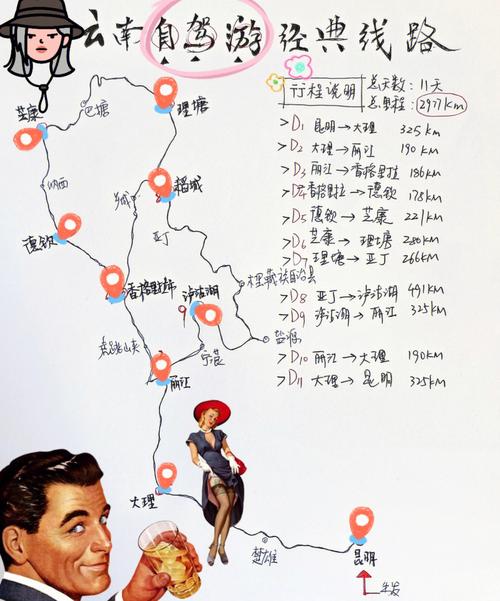 云南自驾游经典线路
行程说明
总天数：11天
总里程：2977KM
>D1 昆明→大理 325KM
>D2 大理→丽江 190KM
>D3 丽江→香格里拉 186KM
>D4 香格里拉→德钦 178KM
>D5 德钦→芒康 221KM
>D6 芒康→理塘 280KM
>D7 理塘→亚丁 266KM
>D8 亚丁→泸沽湖 491KM
>D9 泸沽湖→丽江 325KM
>D10 丽江→大理 190KM
>D11 大理→昆明 325KM
芒康
巴塘
理塘
稻城
乡城
亚丁
德钦
香格里拉
泸沽湖
木里藏族自治县
盐源
宁蒗
虎跳峡
丽江
大理
楚雄
昆明
出发